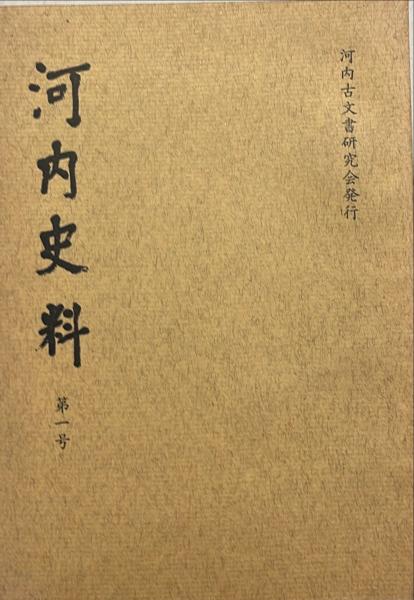 河内古文書研究会発行
河内史料
第一号